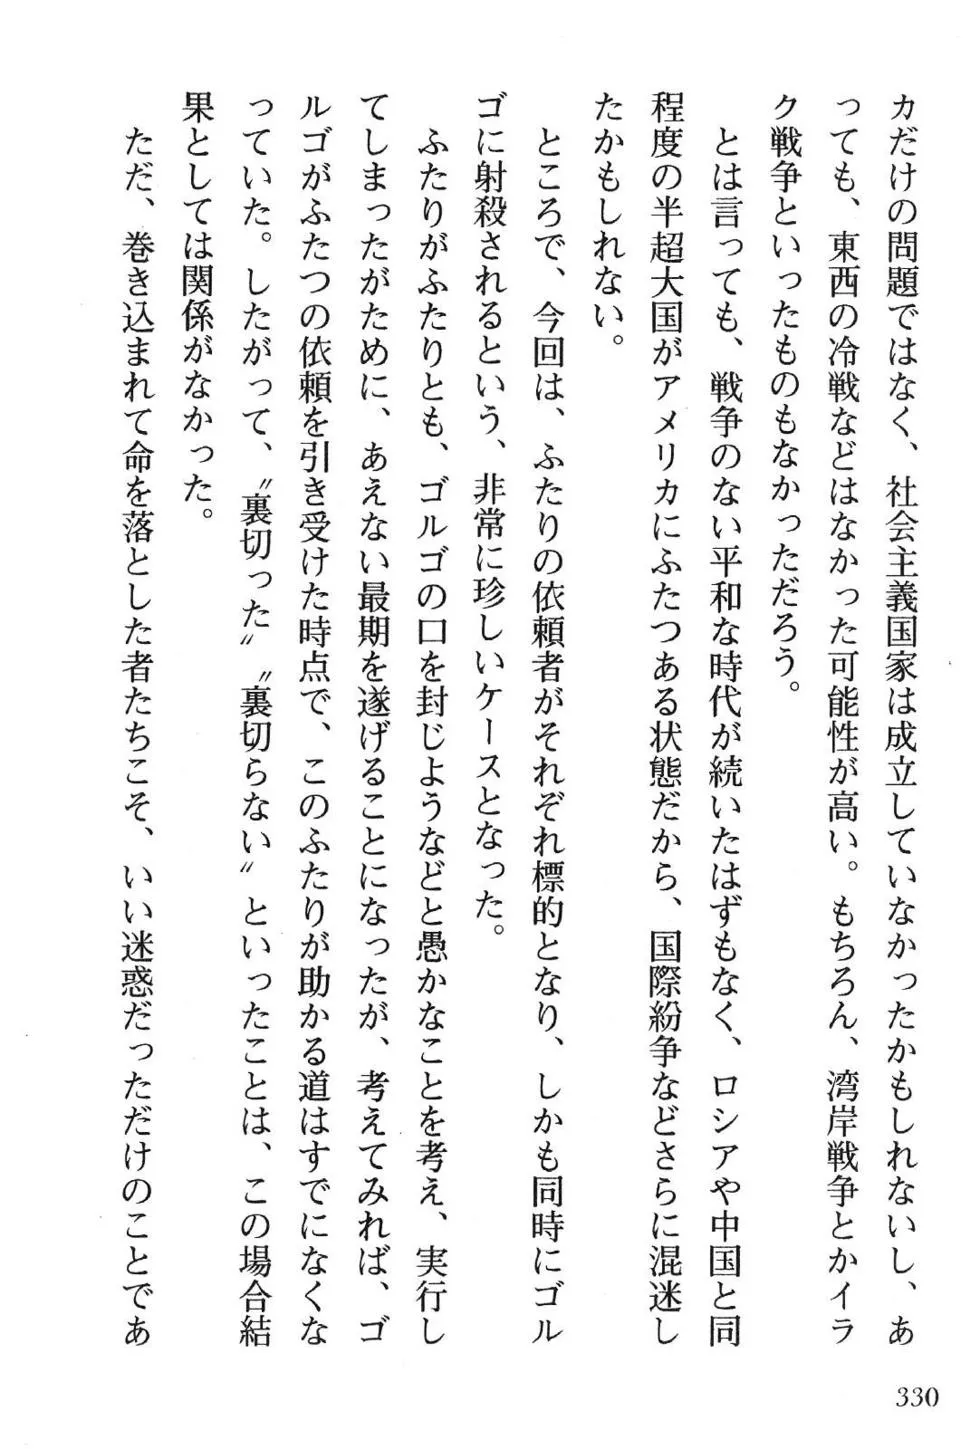 カだけの問題ではなく、社会主義国家は成立していなかったかもしれないし、あ
っても、東西の冷戦などはなかった可能性が高い。もちろん、湾岸戦争とかイラ
ク戦争といったものもなかっただろう。
とは言っても、戦争のない平和な時代が続いたはずもなく、ロシアや中国と同
程度の半超大国がアメリカにふたつある状態だから、国際紛争などさらに混迷し
たかもしれない。
ところで、今回は、ふたりの依頼者がそれぞれ標的となり、しかも同時にゴル
ゴに射殺されるという、非常に珍しいケースとなった。
ふたりがふたりとも、ゴルゴの口を封じようなどと愚かなことを考え、実行し
てしまったがために、あえない最期を遂げることになったが、考えてみれば、ゴ
ルゴがふたつの依頼を引き受けた時点で、このふたりが助かる道はすでになくな
っていた。したがって、〝裏切った〟〝裏切らない〟といったことは、この場合結
果としては関係がなかった。
ただ、巻き込まれて命を落とした者たちこそ、いい迷惑だっただけのことであ
330